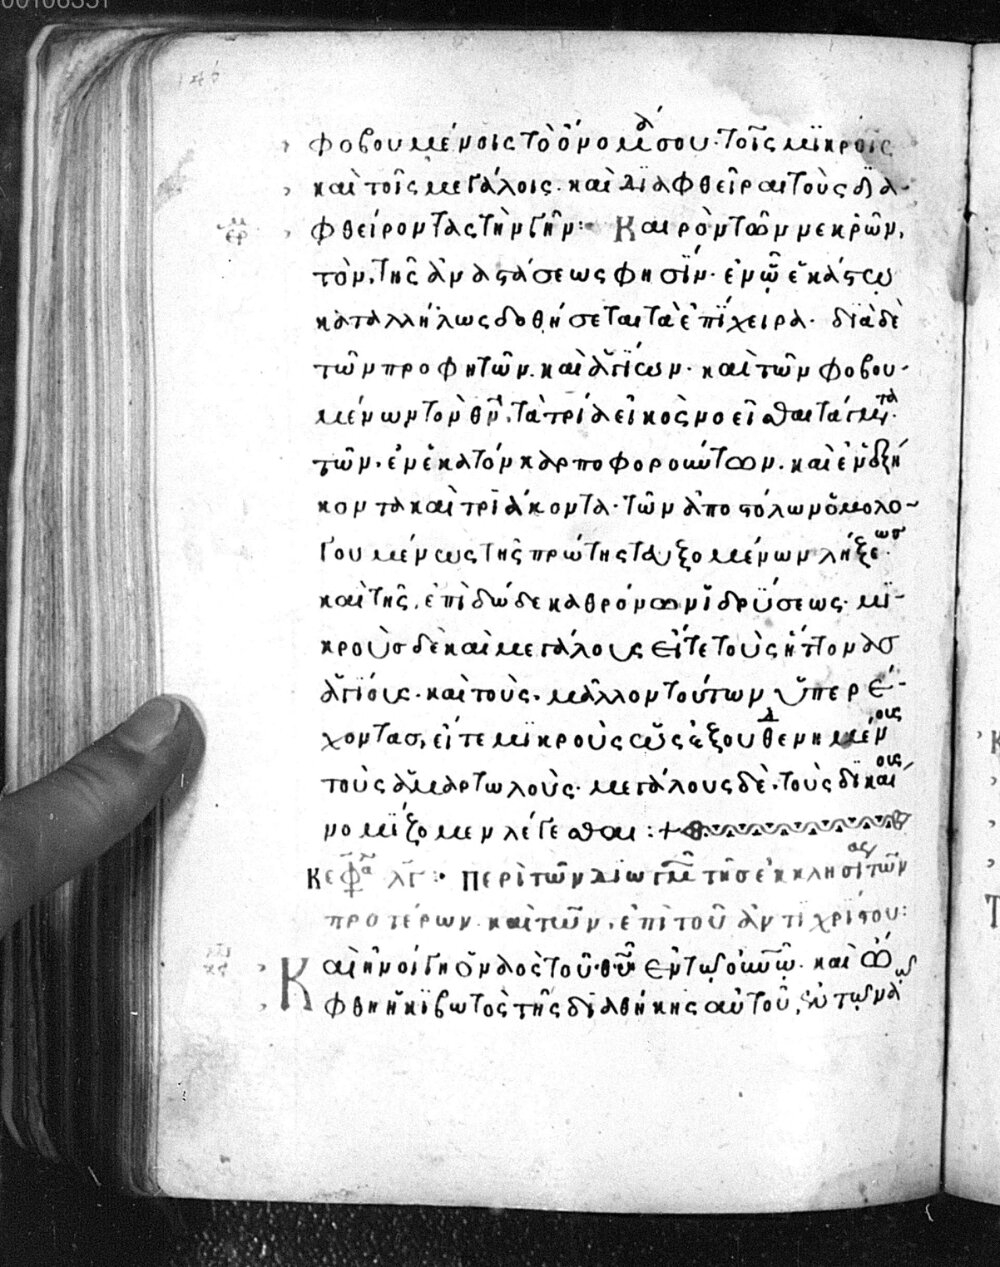 φοβουμένοις τὸ ὄνομά σου· τοῖς μικροῖς
καὶ τοῖς μεγάλοις· καὶ διαφθεῖραι τοὺς δια
φθείροντας τὴν γῆν:· Καιρὸν τῶν νεκρῶν,
τὸν, τῆς ἀναστάσεως φησΐν· ἐν ᾧ ἑκάστω
καταλλήλως δοθήσεται τὰ ἐπΐχειρα· διὰ δὲ
τῶν προφητῶν. καὶ ἁγΐων· καὶ τῶν φοβου
μένων τὸν θν, τὰ τρία εἰκὸς νοεῖσθαι τάγματα·
τῶν, ἐν ἑκατὸν καρποφορούντων. καὶ ἐν ἑξή
κοντα καὶ τριάκοντα· τῶν ἀποστόλων ὁμολο
γουμένως τῆς πρώτης ταυξομένων λήξεως·
καὶ τῆς, ἐπὶ δώδεκα θρόνων ἱδρΰσεως· μϊ
κροὺσ δὲ καὶ μεγάλους εἴτε τοὺς ἥττονασ
ἁγΐους· καὶ τοὺς, μᾶλλον τούτων ὑπερέ
χοντασ, εἴτε μϊκροὺς ὡς ἐξουθενημένοις
τοὺς ἁμαρτωλοὺς· μεγάλους δὲ, τοὺς δϊκαίοις
νομΐζομεν λέγεσθαι :+
Κεφα λγ:· Περὶ τῶν διωγμ τῆσ ἐκκλησίας τῶν
προτέρων καὶ τῶν, ἐπὶ τοῦ ἀντιχρίστου:
Καὶ ἠνοίγη ὁ ναὸς τοῦ θυ ἐν τῷ οὐνῷ· καὶ ὤ
φθη ἡ κϊβωτὸς τῆς διαθήκης αὐτοῦ, ἐν τῷ να